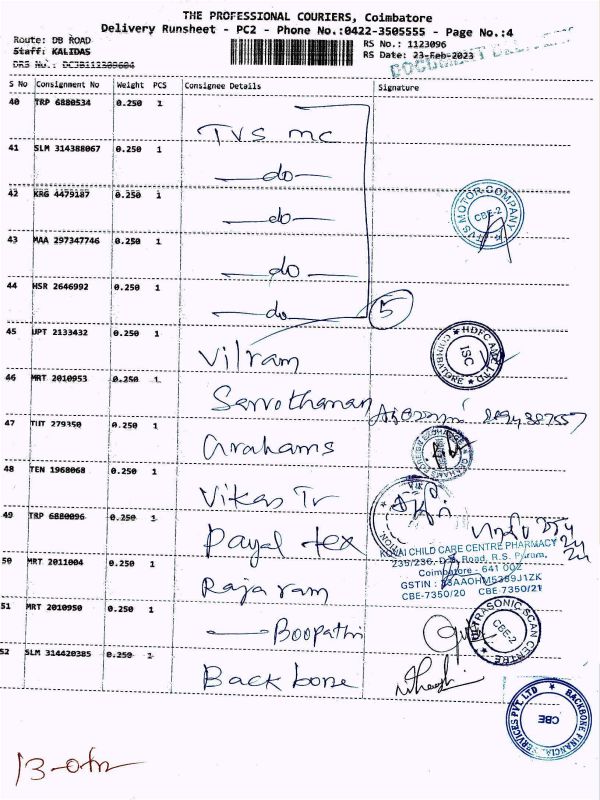 THE PROFESSIONAL COURIERS, Coimbatore
Delivery Runsheet - PC2 - Phone No.:0422-3505555 - Page No.:4
Route: DB ROAD
RS No.: 1123096
Staff: KALIDAS
RS Date: 23-Feb-2023
DRS No.: DC3B112309604
S No Consignment No Weight PCS Consignee Details Signature
40 TRP 6880534 0.250 1 TVS mc
41 SLM 314388067 0.250 1 —do—
42 KRG 4479187 0.250 1 —do—
43 MAA 297347746 0.250 1 —do—
44 HSR 2646992 0.250 1 —do— 5
TVS MOTOR COMPANY
CBE-2
45 UPT 2133432 0.250 1 Vilram
HDFC
COIMBATORE
ISC
46 MRT 2010953 0.250 1
47 TIIT 279350 0.250 1 Grahams
48 TEN 1968068 0.250 1 Vikas Tr
49 TRP 6880096 0.250 1 Payal tex
KOVAI CHILD CARE CENTRE PHARMACY
235/236, D.B. Road, R.S. Puram,
Coimbatore - 641 002
GSTIN :
CBE-7350/20 CBE-7350/21
50 MRT 2011004 0.250 1 Rajaram
51 MRT 2010950 0.250 1 — Boopathi
ULTRASONIC SCAN CENTRE
CBE-2
52 SLM 314420385 0.250 1 Backbone
BACKBONE FINANCIAL SERVICES PVT. LTD
CBE